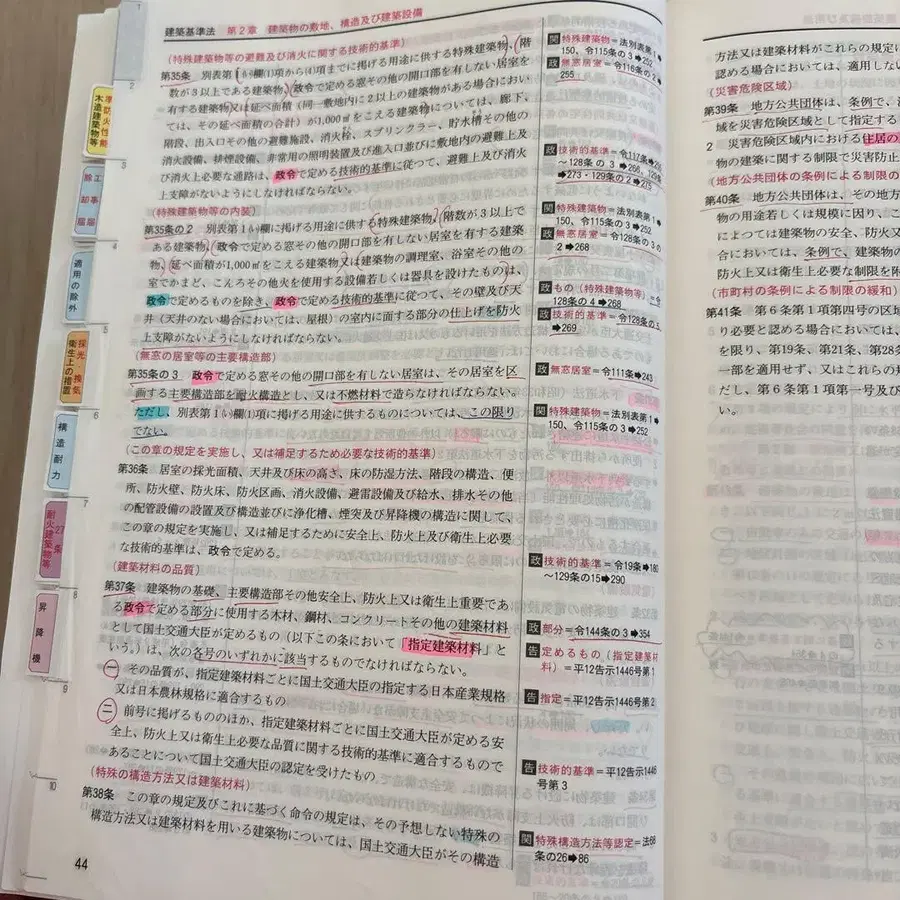 建築基準法 第2章 建築物の敷地、構造及び建築設備
(特殊建築物等の避難及び消火に関する技術的基準)
第35条 別表第1(い)欄(1)項から(4)項までに掲げる用途に供する特殊建築物、階
数が3以上である建築物、政令で定める窓その他の開口部を有しない居室を
有する建築物又は延べ面積(同一敷地内に2以上の建築物がある場合におい
ては、その延べ面積の合計)が1,000㎡をこえる建築物については、廊下、
階段、出入口その他の避難施設、消火栓、スプリンクラー、貯水槽その他の
消火設備、排煙設備、非常用の照明装置及び進入口並びに敷地内の避難上及
び消火上必要な通路は、政令で定める技術的基準に従つて、避難上及び消火
上支障がないようにしなければならない。
(特殊建築物等の内装)
第35条の2 別表第1(い)欄に掲げる用途に供する特殊建築物、階数が3以上で
ある建築物、政令で定める窓その他の開口部を有しない居室を有する建築
物、延べ面積が1,000㎡をこえる建築物又は建築物の調理室、浴室その他の
室でかまど、こんろその他火を使用する設備若しくは器具を設けたものは、
政令で定めるものを除き、政令で定める技術的基準に従つて、その壁及び天
井(天井のない場合においては、屋根)の室内に面する部分の仕上げを防火
上支障がないようにしなければならない。
(無窓の居室等の主要構造部)
第35条の3 政令で定める窓その他の開口部を有しない居室は、その居室を区
画する主要構造部を耐火構造とし、又は不燃材料で造らなければならない。
ただし、別表第1(い)欄(1)項に掲げる用途に供するものについては、この限り
でない。
(この章の規定を実施し、又は補足するため必要な技術的基準)
第36条 居室の採光面積、天井及び床の高さ、床の防湿方法、階段の構造、便
所、防火壁、防火床、防火区画、消火設備、避雷設備及び給水、排水その他
の配管設備の設置及び構造並びに浄化槽、煙突及び昇降機の構造に関して、
この章の規定を実施し、又は補足するために安全上、防火上及び衛生上必要
な技術的基準は、政令で定める。
(建築材料の品質)
第37条 建築物の基礎、主要構造部その他安全上、防火上又は衛生上重要であ
る政令で定める部分に使用する木材、鋼材、コンクリートその他の建築材料
として国土交通大臣が定めるもの(以下この条において「指定建築材料」と
いう。)は、次の各号のいずれかに該当するものでなければならない。
一 その品質が、指定建築材料ごとに国土交通大臣の指定する日本産業規格
又は日本農林規格に適合するもの
二 前号に掲げるもののほか、指定建築材料ごとに国土交通大臣が定める安
全上、防火上又は衛生上必要な品質に関する技術的基準に適合するもので
あることについて国土交通大臣の認定を受けたもの
(特殊の構造方法又は建築材料)
第38条 この章の規定及びこれに基づく命令の規定は、その予想しない特殊の
構造方法又は建築材料を用いる建築物については、国土交通大臣がその構造
44
関 特殊建築物=法別表第1➡
150、令115条の3➡252
政 無窓居室=令116条の2➡
255
政 技術的基準=令117条➡256
~128条の3➡266、129条
➡273・129条の2➡275
関 特殊建築物=法別表第1➡
150、令115条の3➡252
政 無窓居室=令128条の3の
2➡268
政 もの(特殊建築物等)=令
128条の4➡268
政 技術的基準=令128条の5
➡269
政 無窓居室=令111条➡243
関 特殊建築物=法別表第1➡
150、令115条の3➡252
政 技術的基準=令19条➡180
~129条の15➡290
政 部分=令144条の3➡354
告 定めるもの(指定建築材
料)=平12告示1446号第1
告 指定=平12告示1446号第2
告 技術的基準=平12告示1446
号第3
関 特殊構造方法等認定=法68
条の26➡86
1
2
3
4
5
6
7
8
9
10
準防火性能
木造建築物等
除却届
工事届
適用の除外
採光・換気
衛生上の措置
構造耐力
27条
耐火建築物等
昇降機
方法又は建築材料がこれらの規定に
認める場合においては、適用しない
(災害危険区域)
第39条 地方公共団体は、条例で、
域を災害危険区域として指定する
2 災害危険区域内における住居の
物の建築に関する制限で災害防止
(地方公共団体の条例による制限の
第40条 地方公共団体は、その地方
物の用途若しくは規模に因り、こ
によつては建築物の安全、防火又
合においては、条例で、建築物の
防火上又は衛生上必要な制限を
(市町村の条例による制限の緩和)
第41条 第6条第1項第四号の区域
り必要と認める場合においては、
を限り、第19条、第21条、第28条
一部を適用せず、又はこれらの規
だし、第6条第1項第一号及び
い。